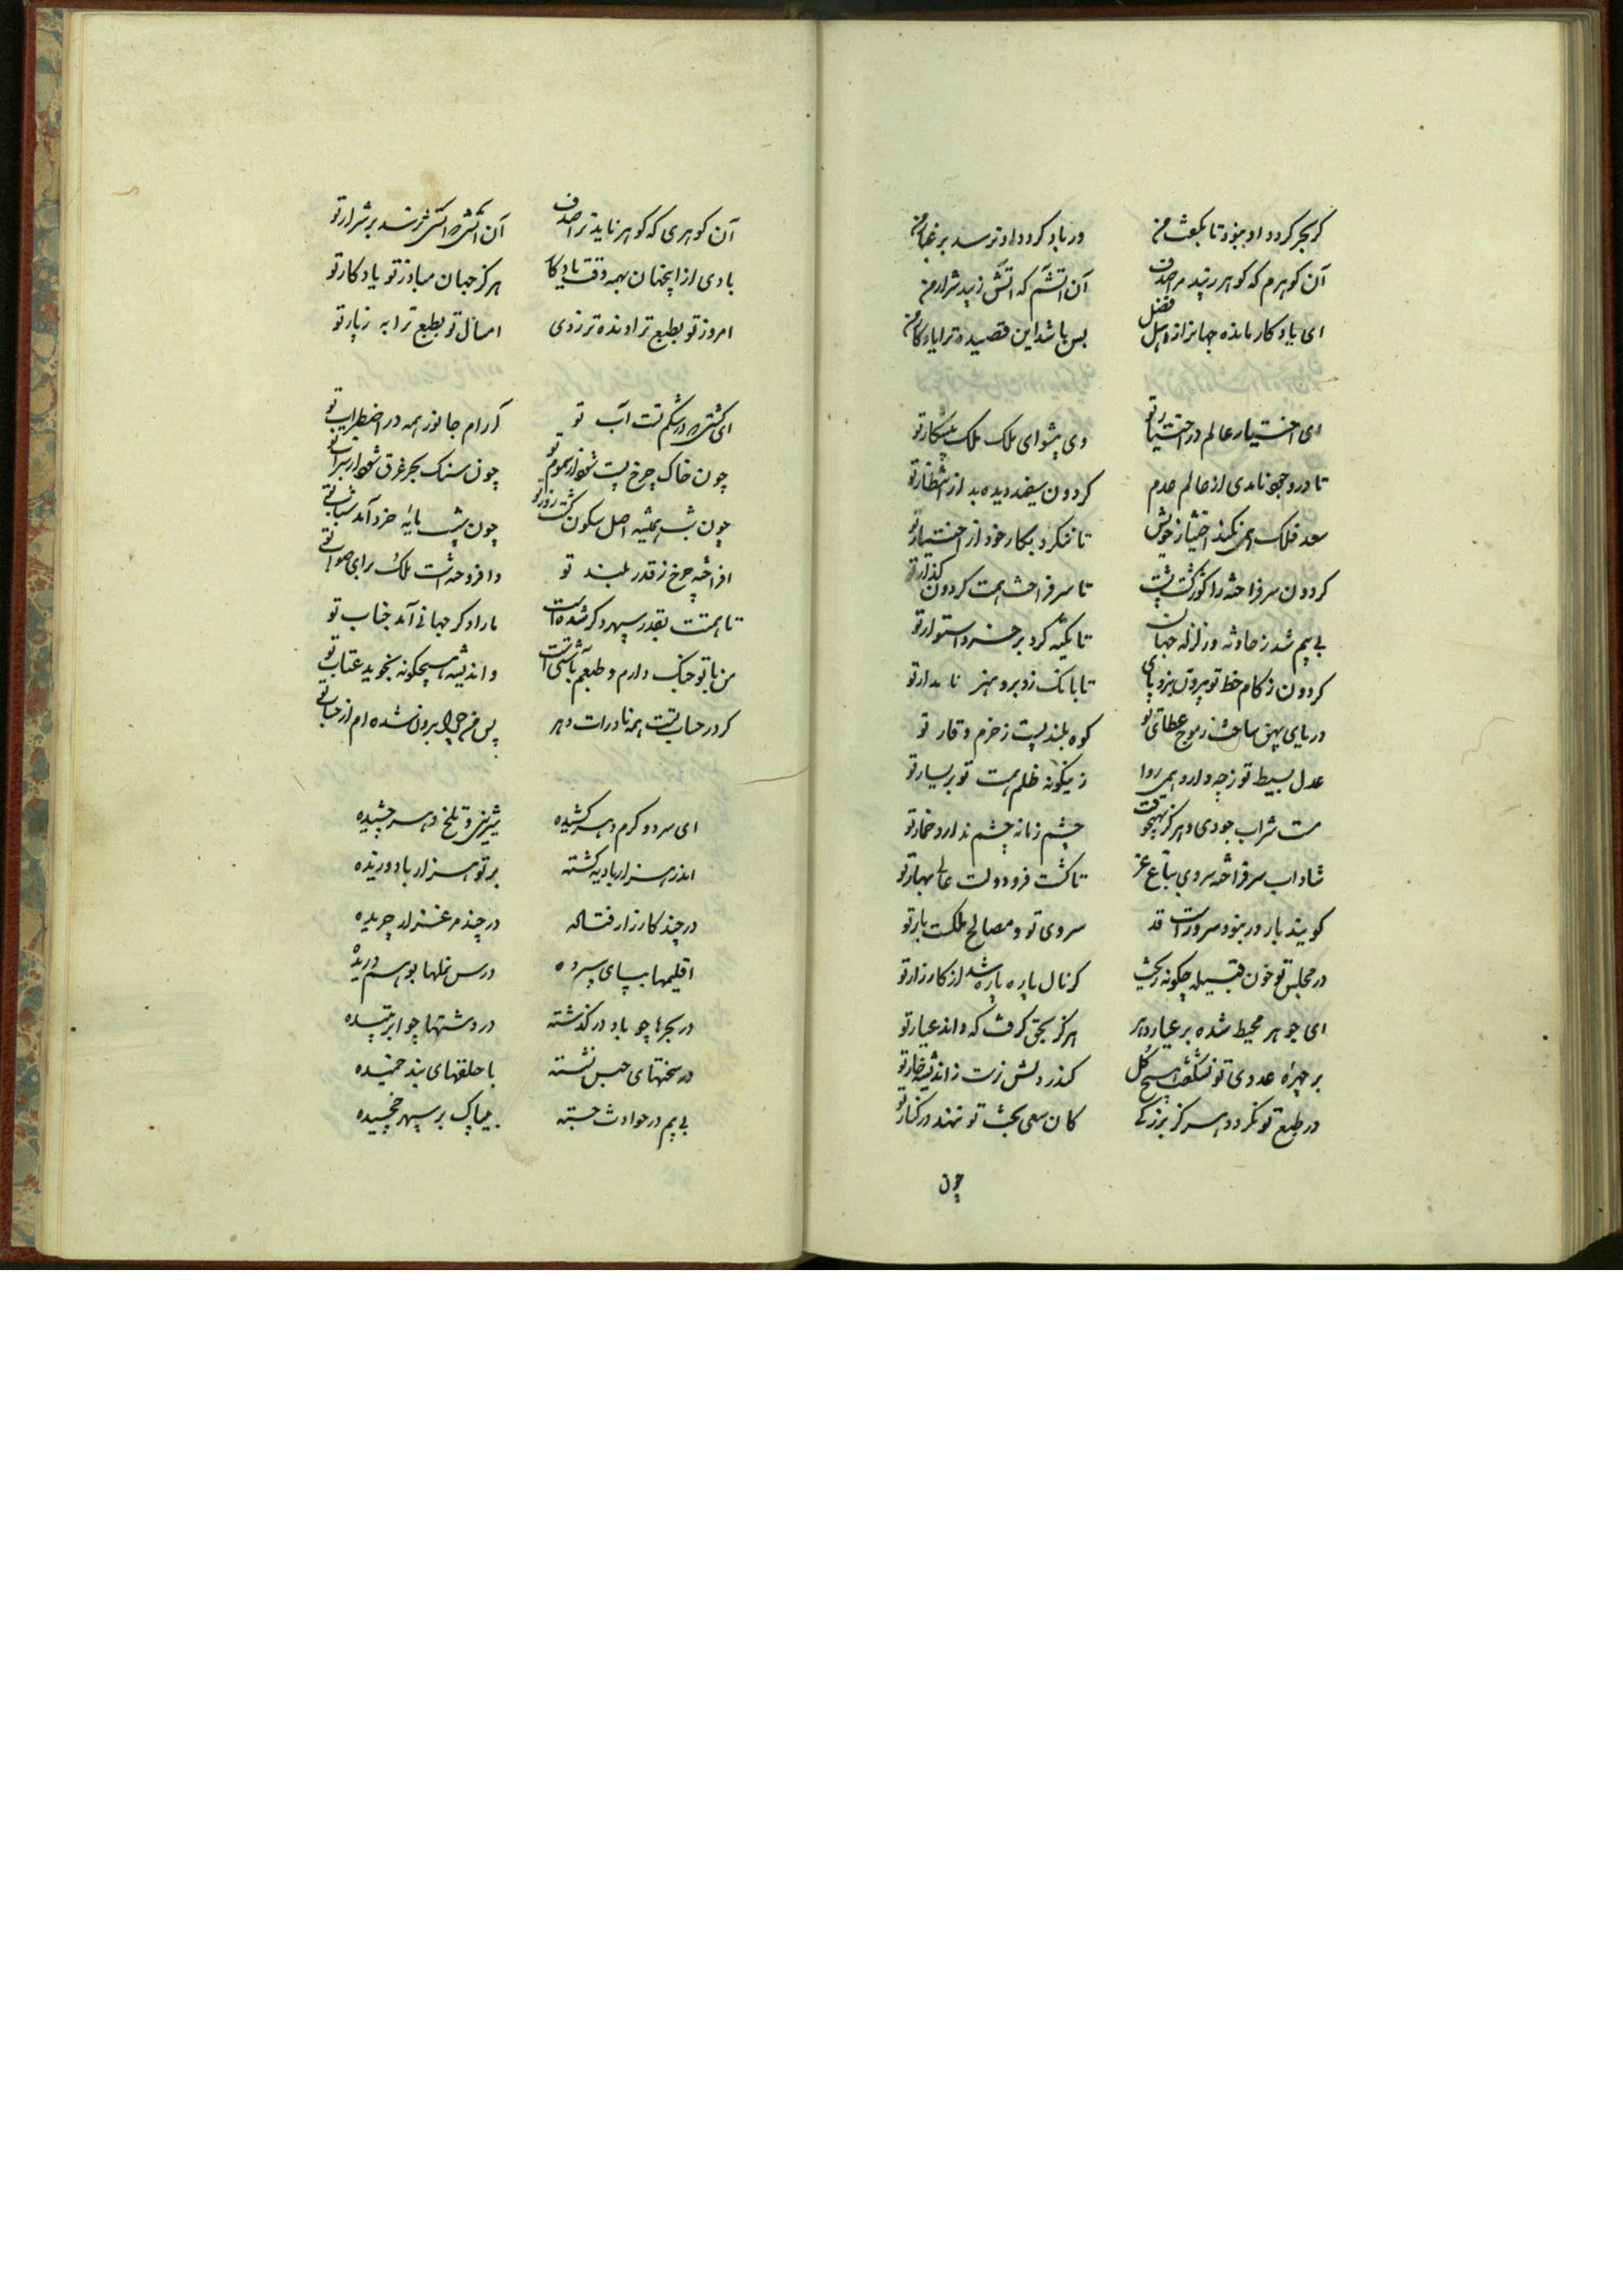 کر بحر کردد او نبود تا بکعب من ور باد کردد او نرسد بر غبار من
آن کوهرم که کوهر زیبد مرا صدف آن اتشم که اتش زیبد شرار من
ای یادکار مانده جهانرا ز اهل فضل بس باشد این قصیده ترا یادکار من
ای اختیار عالم در اختیار تو وی پیشوای ملک ملک پیشکار تو
تا در وجود نامدی از عالم عدم کردون سپید دیده بد از انتظار تو
سعد فلک همی نکند اختیار خویش تا ننکرد بکار خود از اختیار تو
کردون سرفراخته را کوز کشت پشت تا سرفراخت همت کردون کذار تو
بی بیم شد ز حادثه و زلزله جهان تا تکیه کرد بر خرد استوار تو
کردون ز کام خط تو بیرون نبرد پای تا بانک زد برو هنر نامدار تو
دریای پهن ساخت ز موج عطای تو کوه بلند پست ز حزم و قار تو
عدل بسیط تو ز چه دارد همی روا زینکونه ظلم همت تو بر یسار تو
مست شراب جودی و هرکز بهیچوقت چشم زمانه چشم ندارد خمار تو
شاداب سرفراخته سروی بباغ عز تا کشت فر و دولت عالی بهار تو
کویند بار ور نبود سرو راست قد سروی تو و مصالح ملکست بار تو
در مجلس تو خون قبیله چکونه ریخت کر نال پاره پاره شد از کارزار تو
ای جوهر محیط شده بر عیار دهر هرکز بحق کرفت که داند عیار تو
بر چهره عدوی تو نشکفت هیچ کل کندر دلش نرست ز اندیشه خار تو
در طبع تو نکردد هرکز بزرکی کان سعی بخت تو ننهد در کنار تو
چون
آن کوهری که کوهر ناید ترا صدف آن اتشی که اتش نرسد بر شرار تو
بادی از اینجهان بهمه وقت یادکار هرکز جهان مباد ز تو یادکار تو
امروز تو بطبع تراونده تر ز دی امسال تو بطبع ترا به ز پار تو
ای کشتی که در شکم تست آب تو آرام جانور همه در اضطراب تو
چون خاک چرخ پست شود از سموم تو چون سنک بحر غرق شود از سراب تو
چون شب همیشه اصل سکون کشت روز تو چون شیب پایه خرد آمد شباب تو
افراخته چرخ ز قدر بلند تو وافروخته است ملک برای صواب تو
تا همتت بقدر سپهر دکر شده است ما را دکر جهانی آمد جناب تو
من با تو جنک دارم و طبعم بآشتی است واندیشه هیچکونه نجوید عتاب تو
کر در حساب تست همه نادرات دهر پس من چرا برون شده ام از حساب تو
ای سرد و کرم دهر کشیده شیرین و تلخ دهر چشیده
اندر هزار بادیه کشته بر تو هزار باد وزیده
در چند کارزار فتاده در چند مرغزار چریده
اقلیمها بپای سپرده در س بوهم دریده
در بحرها چو باد در کذشته در دشتها چو ابر تنیده
در سختهای حبس نشسته با حلقهای بند خمیده
بی بیم در حوادث جسته بیباک بر سپهر خمیده